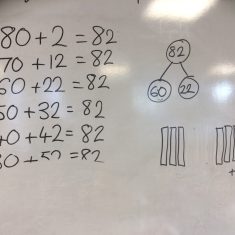 80+2=82
70+12=82
60+22=82
50+32=82
40+42=82
30+52=82
82
60 22